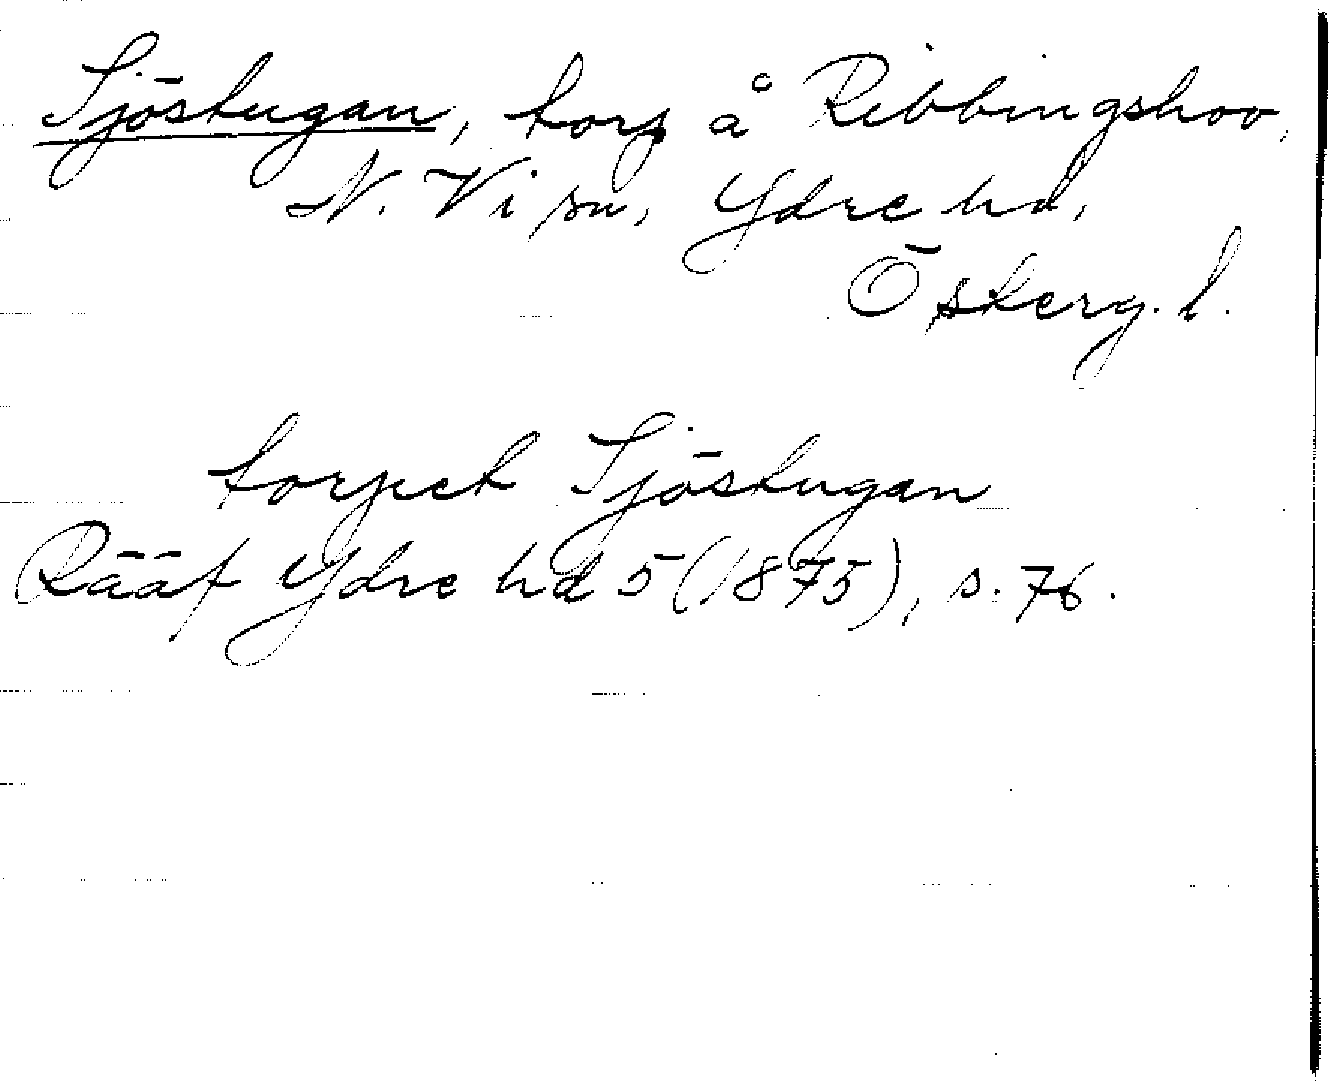 Sjöstugan, torp å Ribbingshov,
N. Vi sn, Ydre hd,
Österg. l.
torpet Sjöstugan
Rääf Ydre hd 5 (1875), s. 76.